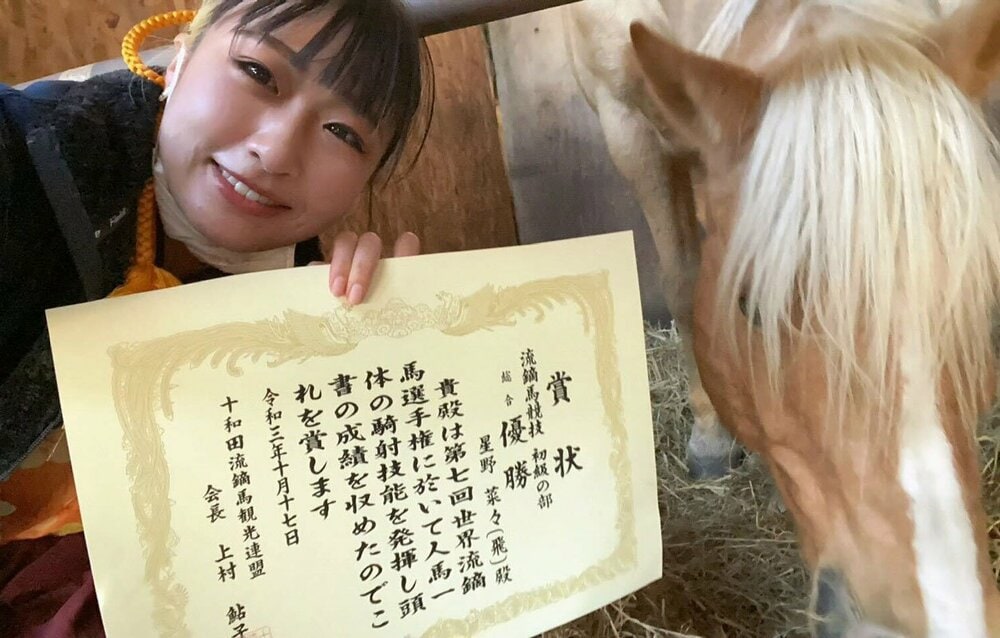 賞状
流鏑馬競技 初級の部
総合 優勝
星野 菜々(飛)殿
貴殿は第七回世界流鏑
馬選手権に於いて人馬一
体の騎射技能を発揮し頭
書の成績を収めたのでこ
れを賞します
令和三年十月十七日
十和田流鏑馬観光連盟
会長 上村 鮎子